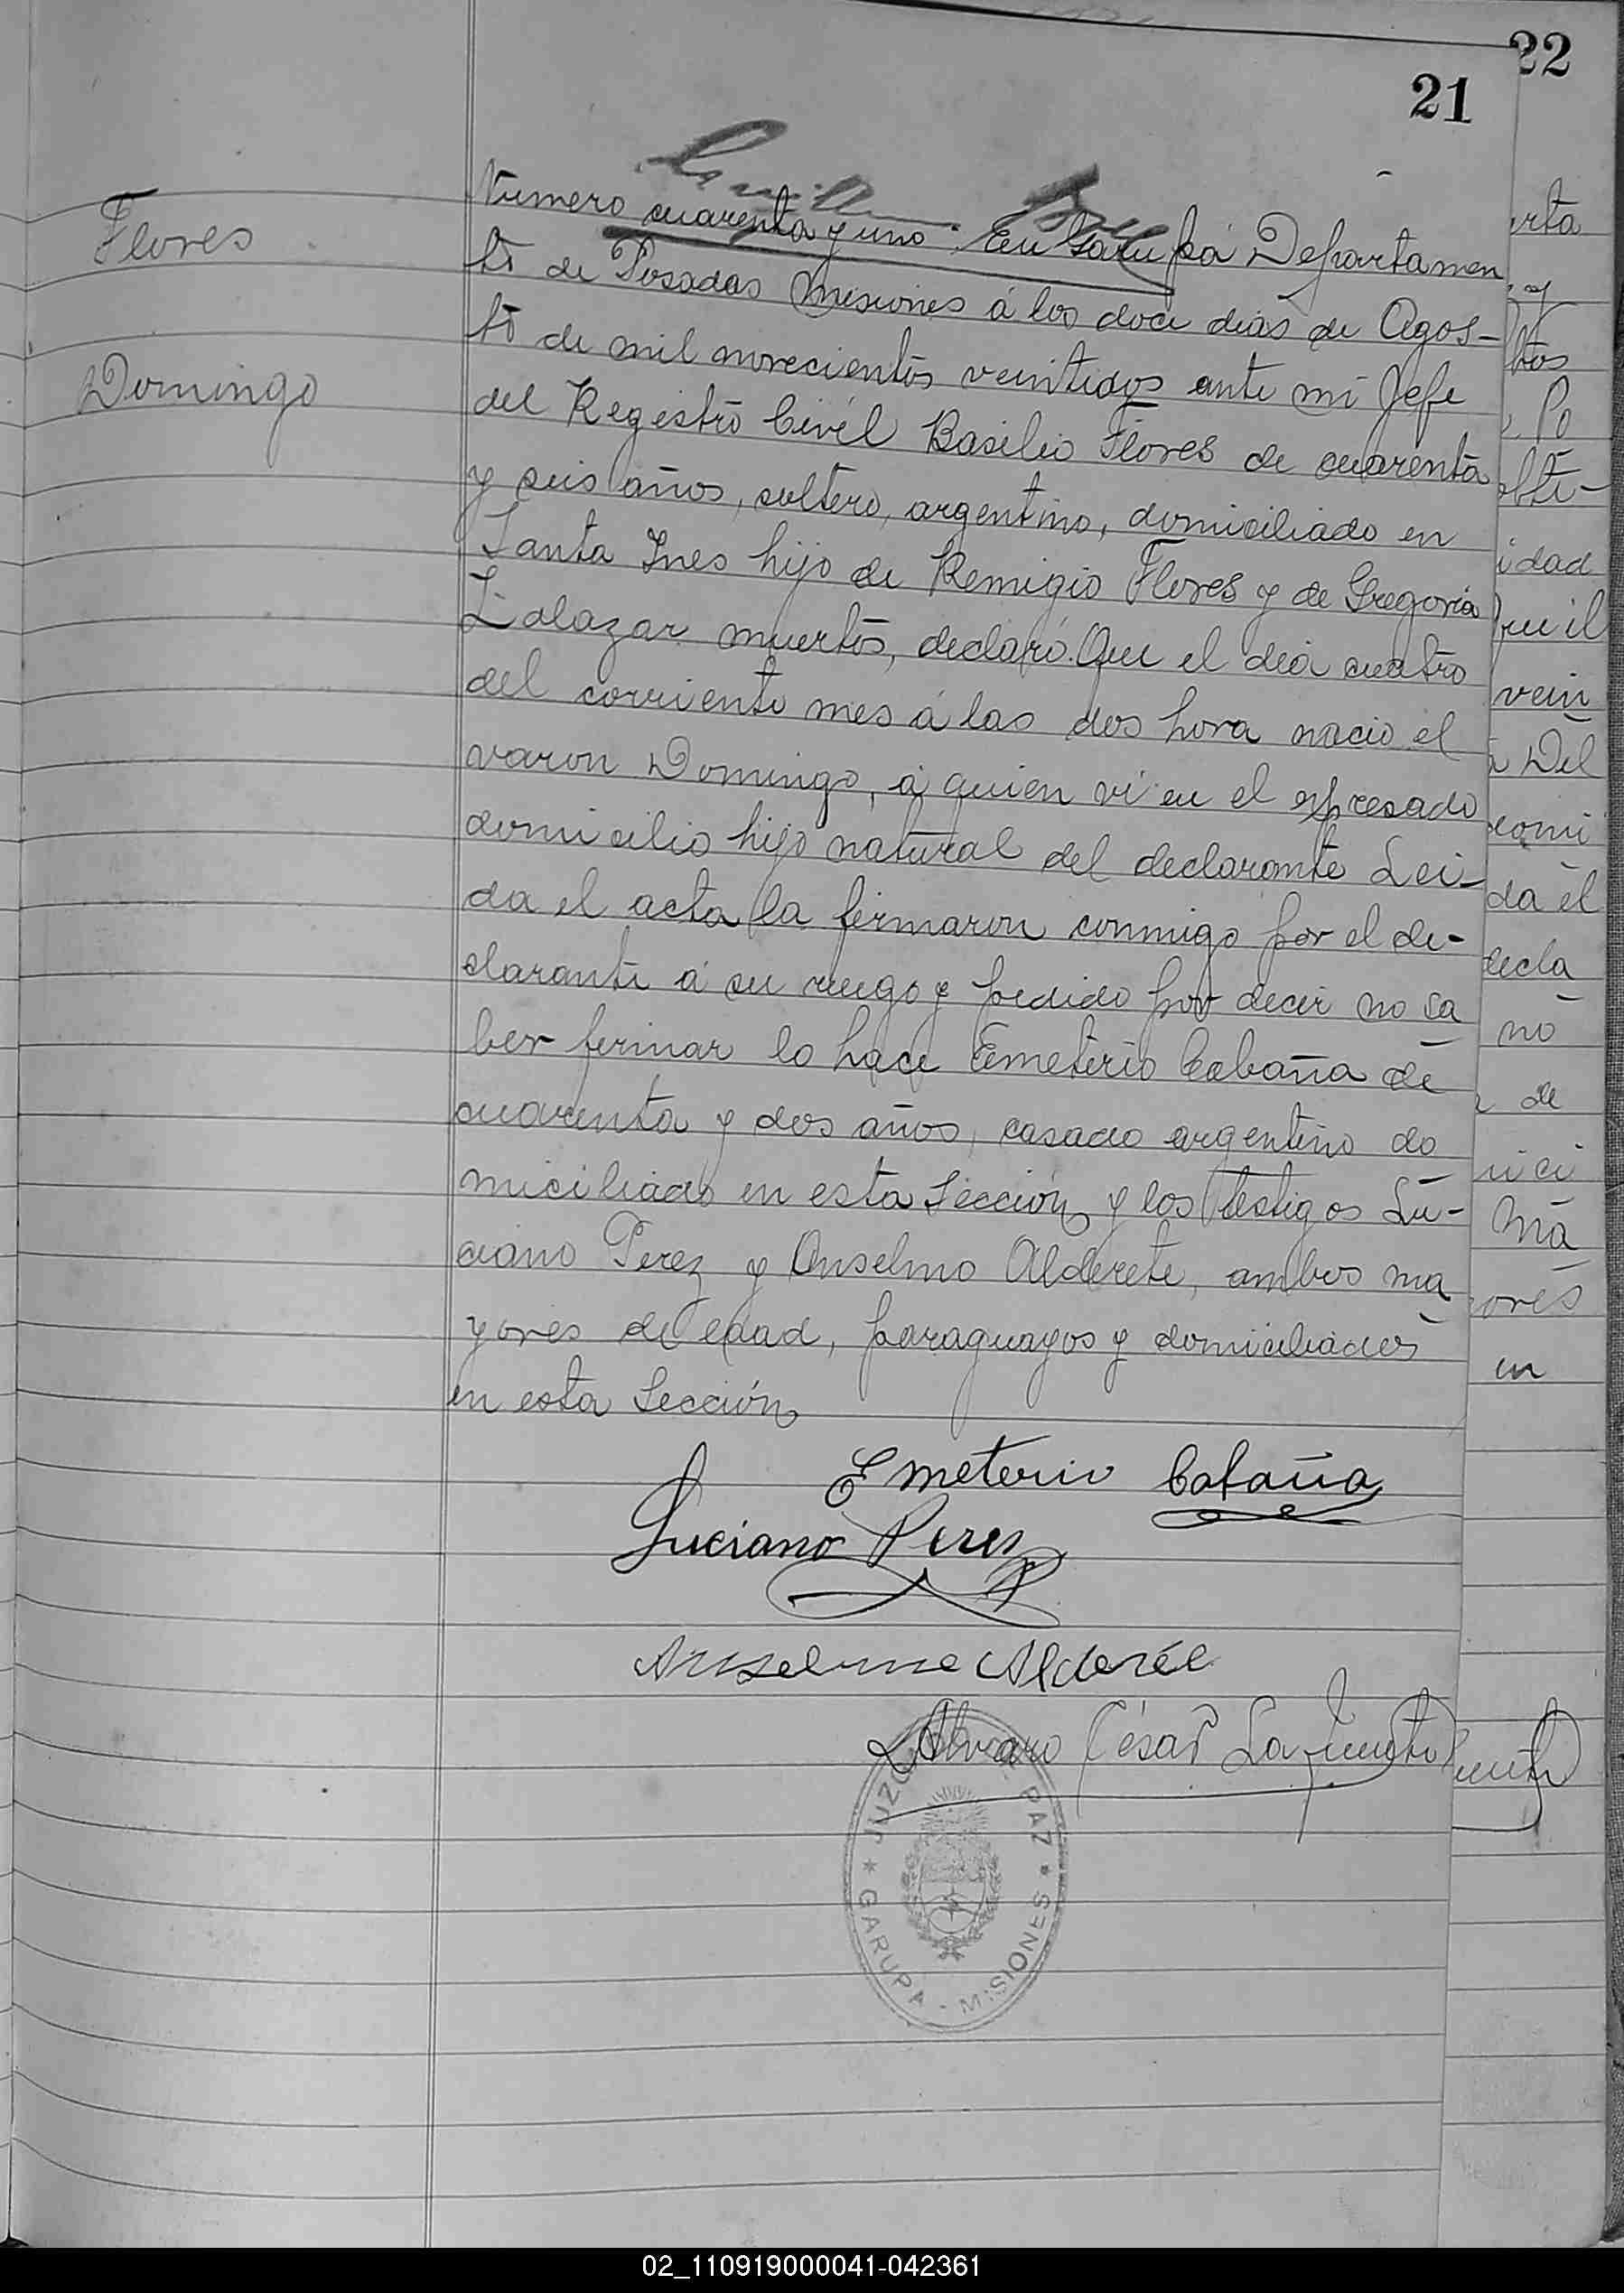 22
21
Flores
Domingo
Número cuarenta y uno. En Garupá Departamen
to de Posadas Misiones á los doce dias de Agos-
to de mil novecientos veintidos ante mi Jefe
del Registro Civil Basilio Flores de cuarenta
y seis años, soltero, argentino, domiciliado en
Santa Ines hijo de Remigio Flores y de Gregoria
Zalazar muertos, declaró: Que el dia cuatro
del corriente mes á las dos hora nació el
varon Domingo, á quien vi en el espresado
domicilio hijo natural del declarante Lei-
da el acta la firmaron conmigo por el de-
clarante á su ruego y pedido por decir no sa
ber firmar lo hace Emeterio Cabaña de
cuarenta y dos años, casado argentino do
miciliado en esta Sección y los testigos Lu-
ciano Perez y Anselmo Alderete, ambos ma
yores de edad, paraguayos y domiciliados
en esta Sección
Emeterio Cabaña
Luciano Peres
Anselmo Alderéte
Alvaro César Lafuente
JUZGADO DE PAZ
GARUPA - MISIONES
02_110919000041-042361